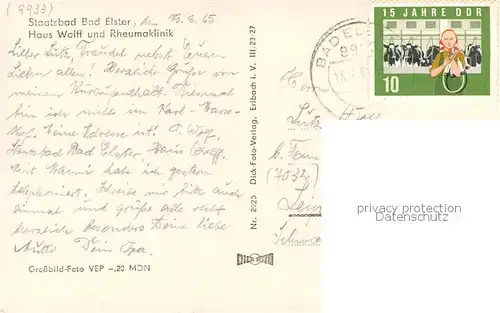 (9933)
Staatsbad Bad Elster, den 15.6.65
Haus Wolff und Rheumaklinik
Lieber Lutz, Traudel nebst Euren
Lieben allen! Herzliche Grüße von
meinem Kuraufenthalt. Diesmal
bin ich nicht im Karl-Marx-
Meine Adresse ist:
Staatsbad Bad Elster Haus Wolff.
Mit habe ich gestern
telephoniert. Schreibe mir bitte auch
einmal und grüße alle recht
herzlich besonders Deine liebe
Mutti Dein Opa.
Großbild-Foto VEP -,20 MDN
Nr. 2925 Dick-Foto-Verlag, Erlbach i. V. III/23/27
DICK FOTO
BAD ELSTER
15 JAHRE DDR
10
Herrn
Lutz
b.
(7032)
Leip
privacy protection
Datenschutz